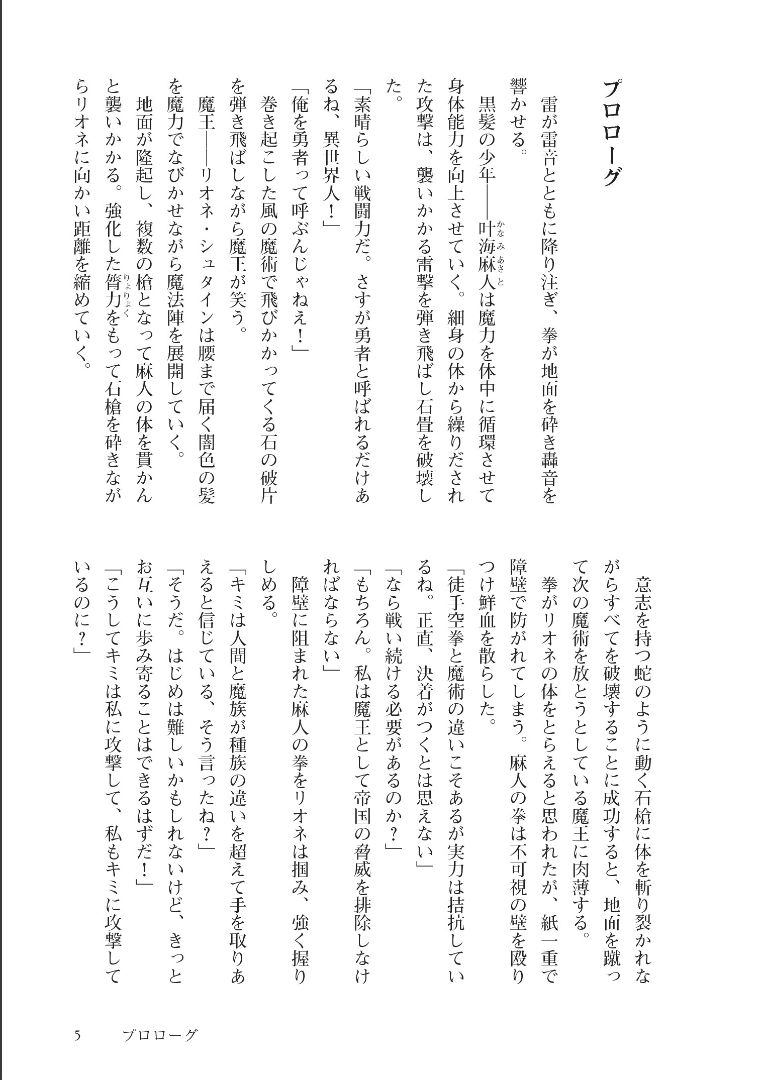 プロローグ
雷が雷音とともに降り注ぎ、拳が地面を砕き轟音を
響かせる。
黒髪の少年――叶海麻人は魔力を体中に循環させて
かなみあさと
身体能力を向上させていく。細身の体から繰りだされ
た攻撃は、襲いかかる雷撃を弾き飛ばし石畳を破壊し
た。
「素晴らしい戦闘力だ。さすが勇者と呼ばれるだけあ
るね、異世界人！」
「俺を勇者って呼ぶんじゃねえ！」
巻き起こした風の魔術で飛びかかってくる石の破片
を弾き飛ばしながら魔王が笑う。
魔王――リオネ・シュタインは腰まで届く闇色の髪
を魔力でなびかせながら魔法陣を展開していく。
地面が隆起し、複数の槍となって麻人の体を貫かん
と襲いかかる。強化した膂力をもって石槍を砕きなが
りょりょく
らリオネに向かい距離を縮めていく。
意志を持つ蛇のように動く石槍に体を斬り裂かれな
がらすべてを破壊することに成功すると、地面を蹴っ
て次の魔術を放とうとしている魔王に肉薄する。
拳がリオネの体をとらえると思われたが、紙一重で
障壁で防がれてしまう。麻人の拳は不可視の壁を殴り
つけ鮮血を散らした。
「徒手空拳と魔術の違いこそあるが実力は拮抗してい
るね。正直、決着がつくとは思えない」
「なら戦い続ける必要があるのか？」
「もちろん。私は魔王として帝国の脅威を排除しなけ
ればならない」
障壁に阻まれた麻人の拳をリオネは掴み、強く握り
しめる。
「キミは人間と魔族が種族の違いを超えて手を取りあ
えると信じている、そう言ったね？」
「そうだ。はじめは難しいかもしれないけど、きっと
お互いに歩み寄ることはできるはずだ！」
「こうしてキミは私に攻撃して、私もキミに攻撃して
いるのに？」
5 プロローグ